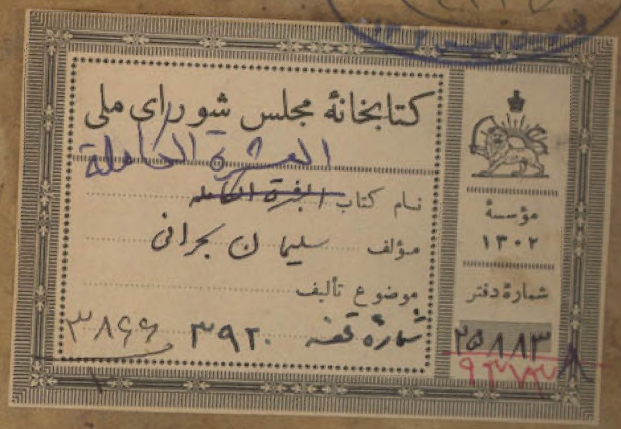 کتابخانهٔ مجلس شورای ملی
العشرة الکاملة
نام کتاب
مؤلف سلیمان بحرانی
موضوع تألیف
شمارهٔ قفسه ۳۹۲۰
۳۸۶۶
مؤسسهٔ
۱۳۰۲
شمارهٔ دفتر
۲۵۸۸۳